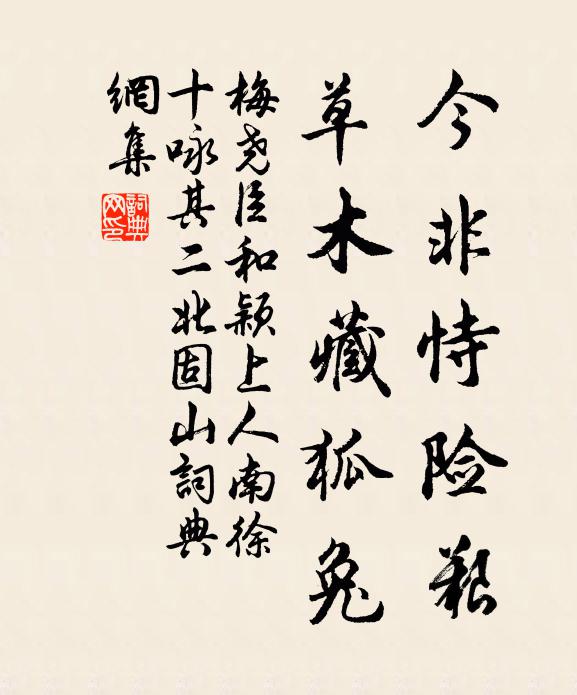 今非恃险艰
草木藏狐兔
梅尧臣和颖上人南徐
十咏其二北固山词典
網集
詞典网印